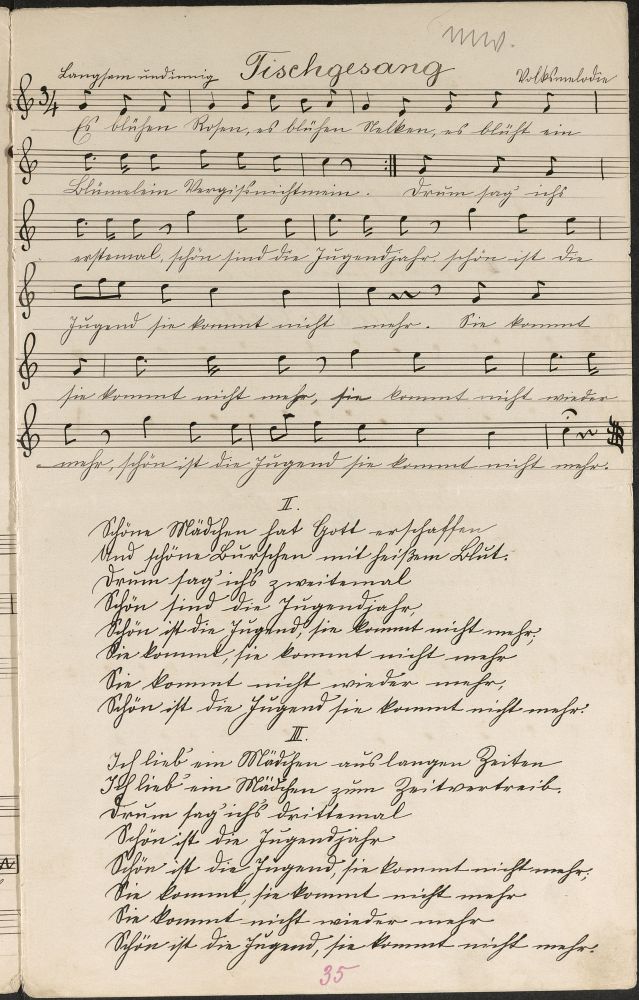 mw.
Langsam und innig Tischgesang Volksmelodie
3/4
Es blühen Rosen, es blühen Nelken, es blüht ein
Blümelein Vergißnichtmein. Drum sag' ichs
erstemal, schön sind die Jugendjahr, schön ist die
Jugend sie kommt nicht mehr. Sie kommt
sie kommt nicht mehr, sie kommt nicht wieder
mehr, schön ist die Jugend sie kommt nicht mehr.
II.
Schöne Mädchen hat Gott erschaffen
Und schöne Burschen mit heißem Blut.
Drum sag' ich's zweitemal
Schön sind die Jugendjahr,
Schön ist die Jugend, sie kommt nicht mehr,
Sie kommt, sie kommt nicht mehr
Sie kommt nicht wieder mehr,
Schön ist die Jugend sie kommt nicht mehr.
III.
Ich lieb' ein Mädchen aus langen Zeiten
Ich lieb' ein Mädchen zum Zeitvertreib.
Drum sag' ich's drittemal
Schön ist die Jugendjahr
Schön ist die Jugend, sie kommt nicht mehr,
Sie kommt, sie kommt nicht mehr
Sie kommt nicht wieder mehr
Schön ist die Jugend, sie kommt nicht mehr.
35